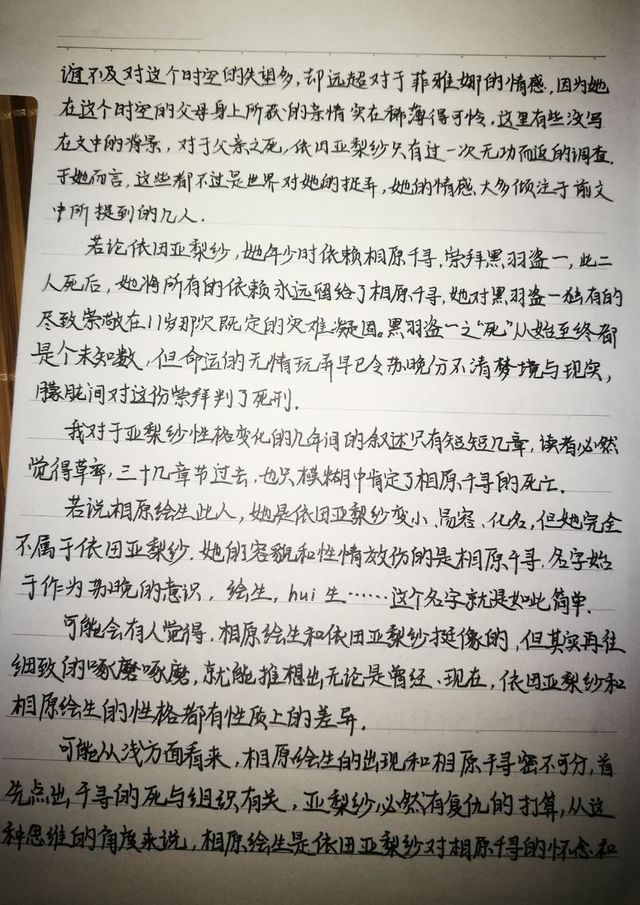 谊不及对这个时空的失望多，却远超对于菲雅娜的情感。因为她
在这个时空的父母身上所获的亲情实在稀薄得可怜，这里有些没写
在文中的背景，对于父亲之死，依田亚梨纱只有过一次无功而返的调查。
于她而言，这些都不过是世界对她的捉弄，她的情感大多倾注于前文
中所提到的几人。
若论依田亚梨纱，她年少时依赖相原千寻，崇拜黑羽盗一，此二
人死后，她将所有的依赖永远留给了相原千寻，她对黑羽盗一独有的
尽致崇敬在11岁那次既定的灾难凝固。黑羽盗一之“死”从始至终都
是个未知数，但命运的无情玩弄早已令苏晚份不清梦境与现实，
朦胧间对这份崇拜判了死刑。
我对于亚梨纱性格变化的几年间的叙述只有短短几章，读者必然
觉得草率，三十几章节过去，也只模糊中肯定了相原千寻的死亡。
若说相原绘生此人，她是依田亚梨纱变小、易容、化名，但她完全
不属于依田亚梨纱。她的容貌和性情效仿的是相原千寻，名字始
于作为苏晚的意识，绘生，hui生……这个名字就是如此简单。
可能会有人觉得，相原绘生和依田亚梨纱挺像的，但其实再往
细致的啄磨啄磨，就能推想出无论是曾经、现在，依田亚梨纱和
相原绘生的性格都有性质上的差异。
可能从浅方面看来，相原绘生的出现和相原千寻密不可分，首
先点出千寻的死与组织有关，亚梨纱必然有复仇的打算，从这
种思维的角度来说，相原绘生是依田亚梨纱对相原千寻的怀念和